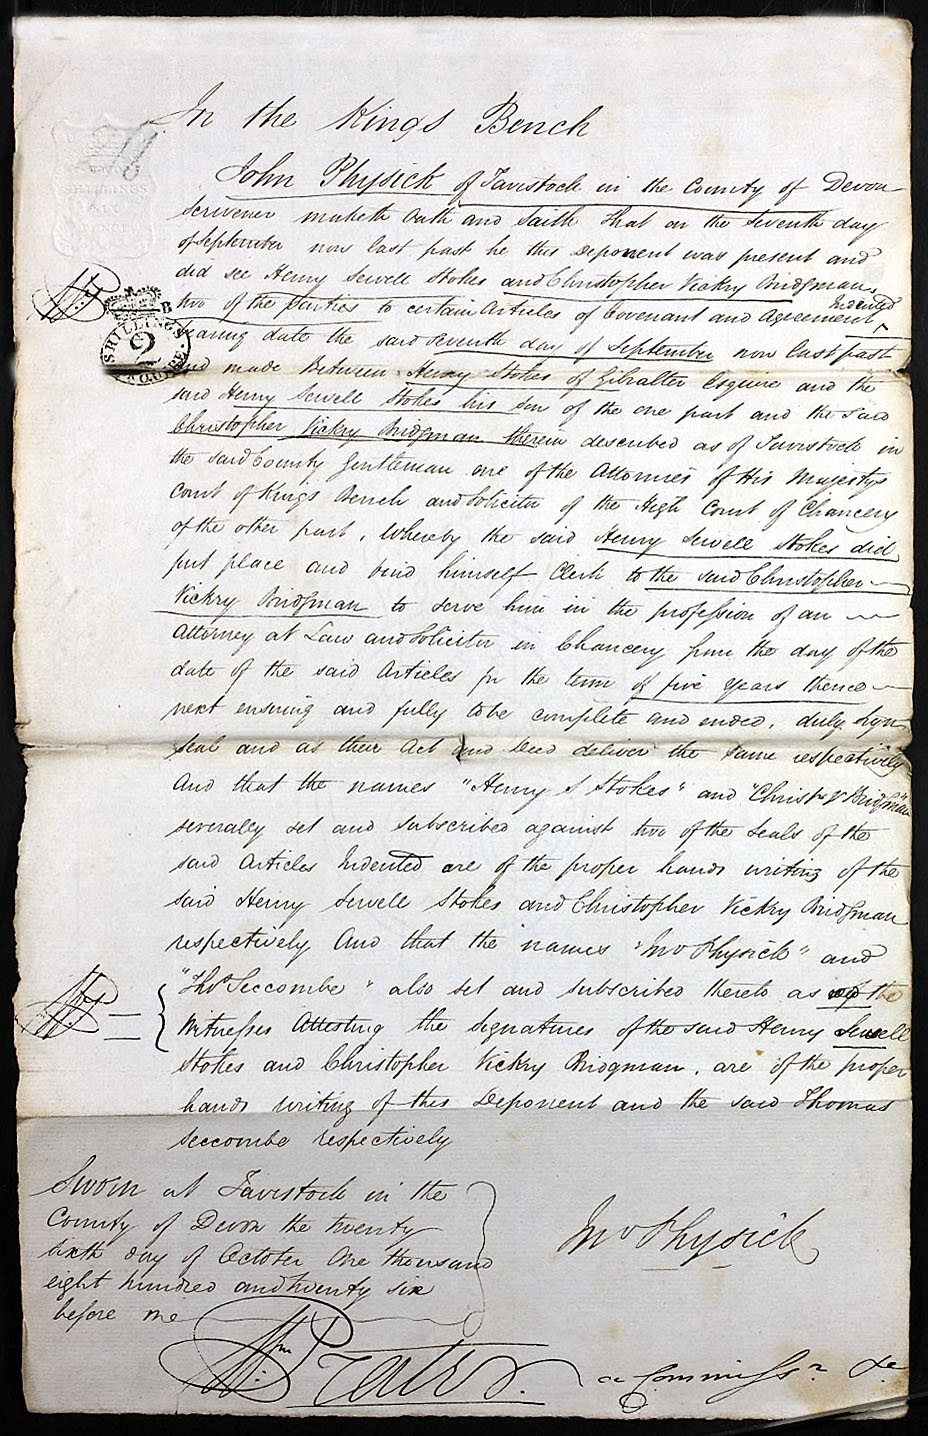 In the Kings Bench
John Physick of Tavistock in the County of Devon
Scrivener maketh Oath and saith that on the seventh day
of September now last past he this Deponent was present and
did see Henry Sewell Stokes and Christopher Vickry Bridgman,
two of the parties to certain Articles of Covenant and Agreement Indented
bearing date the said seventh day of September now last past
and made Between Henry Stokes of Gibralter Esquire and the
said Henry Sewell Stokes his Son of the one part and the said
Christopher Vickry Bridgman therein described as of Tavistock in
the said County Gentleman one of the Attornies of His Majestys
Court of Kings Bench and Solicitor of the High Court of Chancery
of the other part, Whereby the said Henry Sewell Stokes did
put place and bind himself Clerk to the said Christopher
Vickry Bridgman to serve him in the profession of an
Attorney at Law and Solicitor in Chancery from the day of the
date of the said Articles for the term of five years thence
next ensuing and fully to be complete and ended, duly sign
seal and as their Act and Deed deliver the same respectively
And that the names "Henry S Stokes" and "Christr V Bridgman"
severally set and subscribed against two of the Seals of the
said Articles Indented are of the proper hands writing of the
said Henry Sewell Stokes and Christopher Vickry Bridgman
respectively And that the names "Jno Physick" and
"Thos Seccombe" also set and subscribed thereto as of the
Witnesses Attesting the Signatures of the said Henry Sewell
Stokes and Christopher Vickry Bridgman, are of the proper
hands writing of this Deponent and the said Thomas
Seccombe respectively
Sworn at Tavistock in the
County of Devon the twenty
sixth day of October One thousand
eight hundred and twenty six
before me
Jno Physick
Wm a Commissr &c
SHILLINGS
2